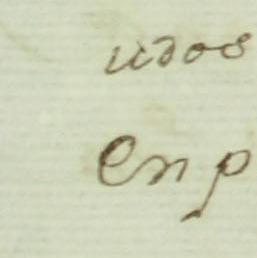 udos
en p